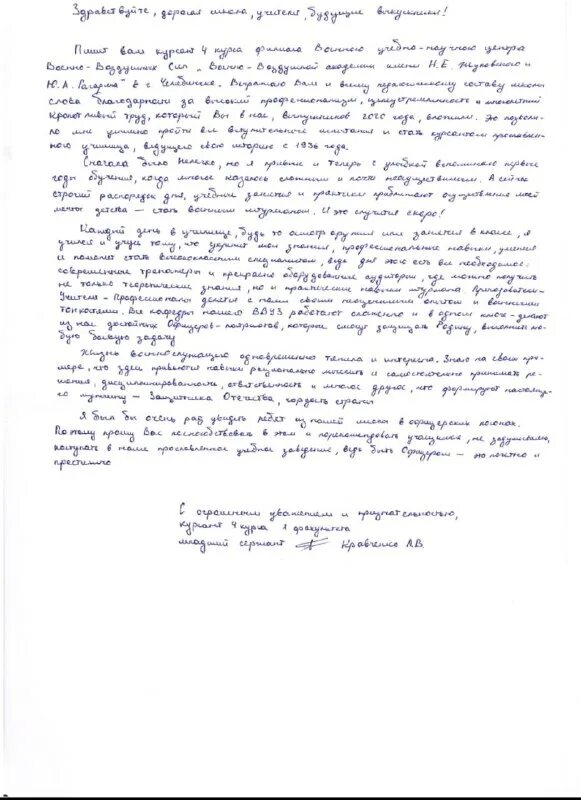 Здравствуйте, дорогая школа, учителя, будущие выпускники!
Пишет вам курсант 4 курса филиала Военного учебно-научного центра
Военно-Воздушных Сил „Военно-Воздушной академии имени Н.Е. Жуковского и
Ю.А. Гагарина" в г. Челябинске. Выражаю Вам и всему педагогическому составу школы
слова благодарности за высокий профессионализм, целеустремленность и многолетний
кропотливый труд, который Вы в нас, выпускников 2020 года, вложили. Это позволи-
ло мне успешно пройти все вступительные испытания и стать курсантом прославлен-
ного училища, ведущего свою историю с 1936 года.
Сначала было нелегко, но я привык и теперь с улыбкой вспоминаю первые
годы обучения, когда многое казалось сложным и почти неосуществимым. А сейчас
строгий распорядок дня, учебные занятия и практики приближают осуществление моей
мечты детства — стать военным штурманом. И это случится скоро!
Каждый день в училище, будь то осмотр оружия или занятия в классе, я
учился и учусь тому, что укрепит мои знания, профессиональные навыки, умения
и поможет стать высококлассным специалистом, ведь для этого есть все необходимое:
современные тренажеры и прекрасно оборудованные аудитории, где можно получить
не только теоретические знания, но и практические навыки штурмана. Преподаватели-
Учителя - Профессионалы делятся с нами своим неоценимым опытом и воинскими
тонкостями. Все кафедры нашего ВВУЗ работают слаженно и в одном ключе - делают
из нас достойных Офицеров-патриотов, которые смогут защищать Родину, выполнить лю-
бую боевую задачу
Жизнь военнослужащего одновременно тяжела и интересна. Знаю на своем при-
мере, что здесь прививают навыки рационально мыслить и самостоятельно принимать ре-
шения, дисциплинированность, ответственность и многое другое, что формирует настояще-
го мужчину - Защитника Отечества, гордость страны
Я был бы очень рад увидеть ребят из нашей школы в офицерских погонах.
Поэтому прошу Вас поспособствовать в этом и порекомендовать учащимся, не задумываясь,
поступать в наше прославленное учебное заведение, ведь быть Офицером — это почетно и
престижно
С огромным уважением и признательностью,
курсант 4 курса 1 факультета
младший сержант Кравченко А.В.